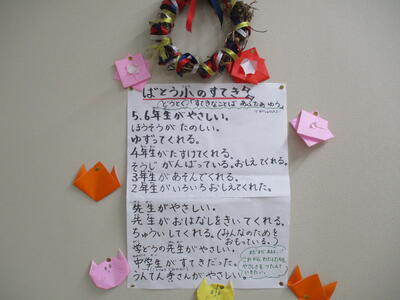 ばとう小のすてき
どうとく「すてきなことば あふたあゆう」
5.6年生がやさしい。
ほうそうが たのしい。
ゆずってくれる。
4年生がたすけてくれる。
そうじ がんばっている。おしえてくれる。
3年生があそんでくれる。
2年生がいろいろおしえてくれた。
先生がやさしい。
先生がおはなしをきいてくれる。
ちゅういしてくれる。(みんなのためを
おもっている。)
学どうの先生がやさしい。
中学生がすてきだった。
うんてん手さんがやさしい。